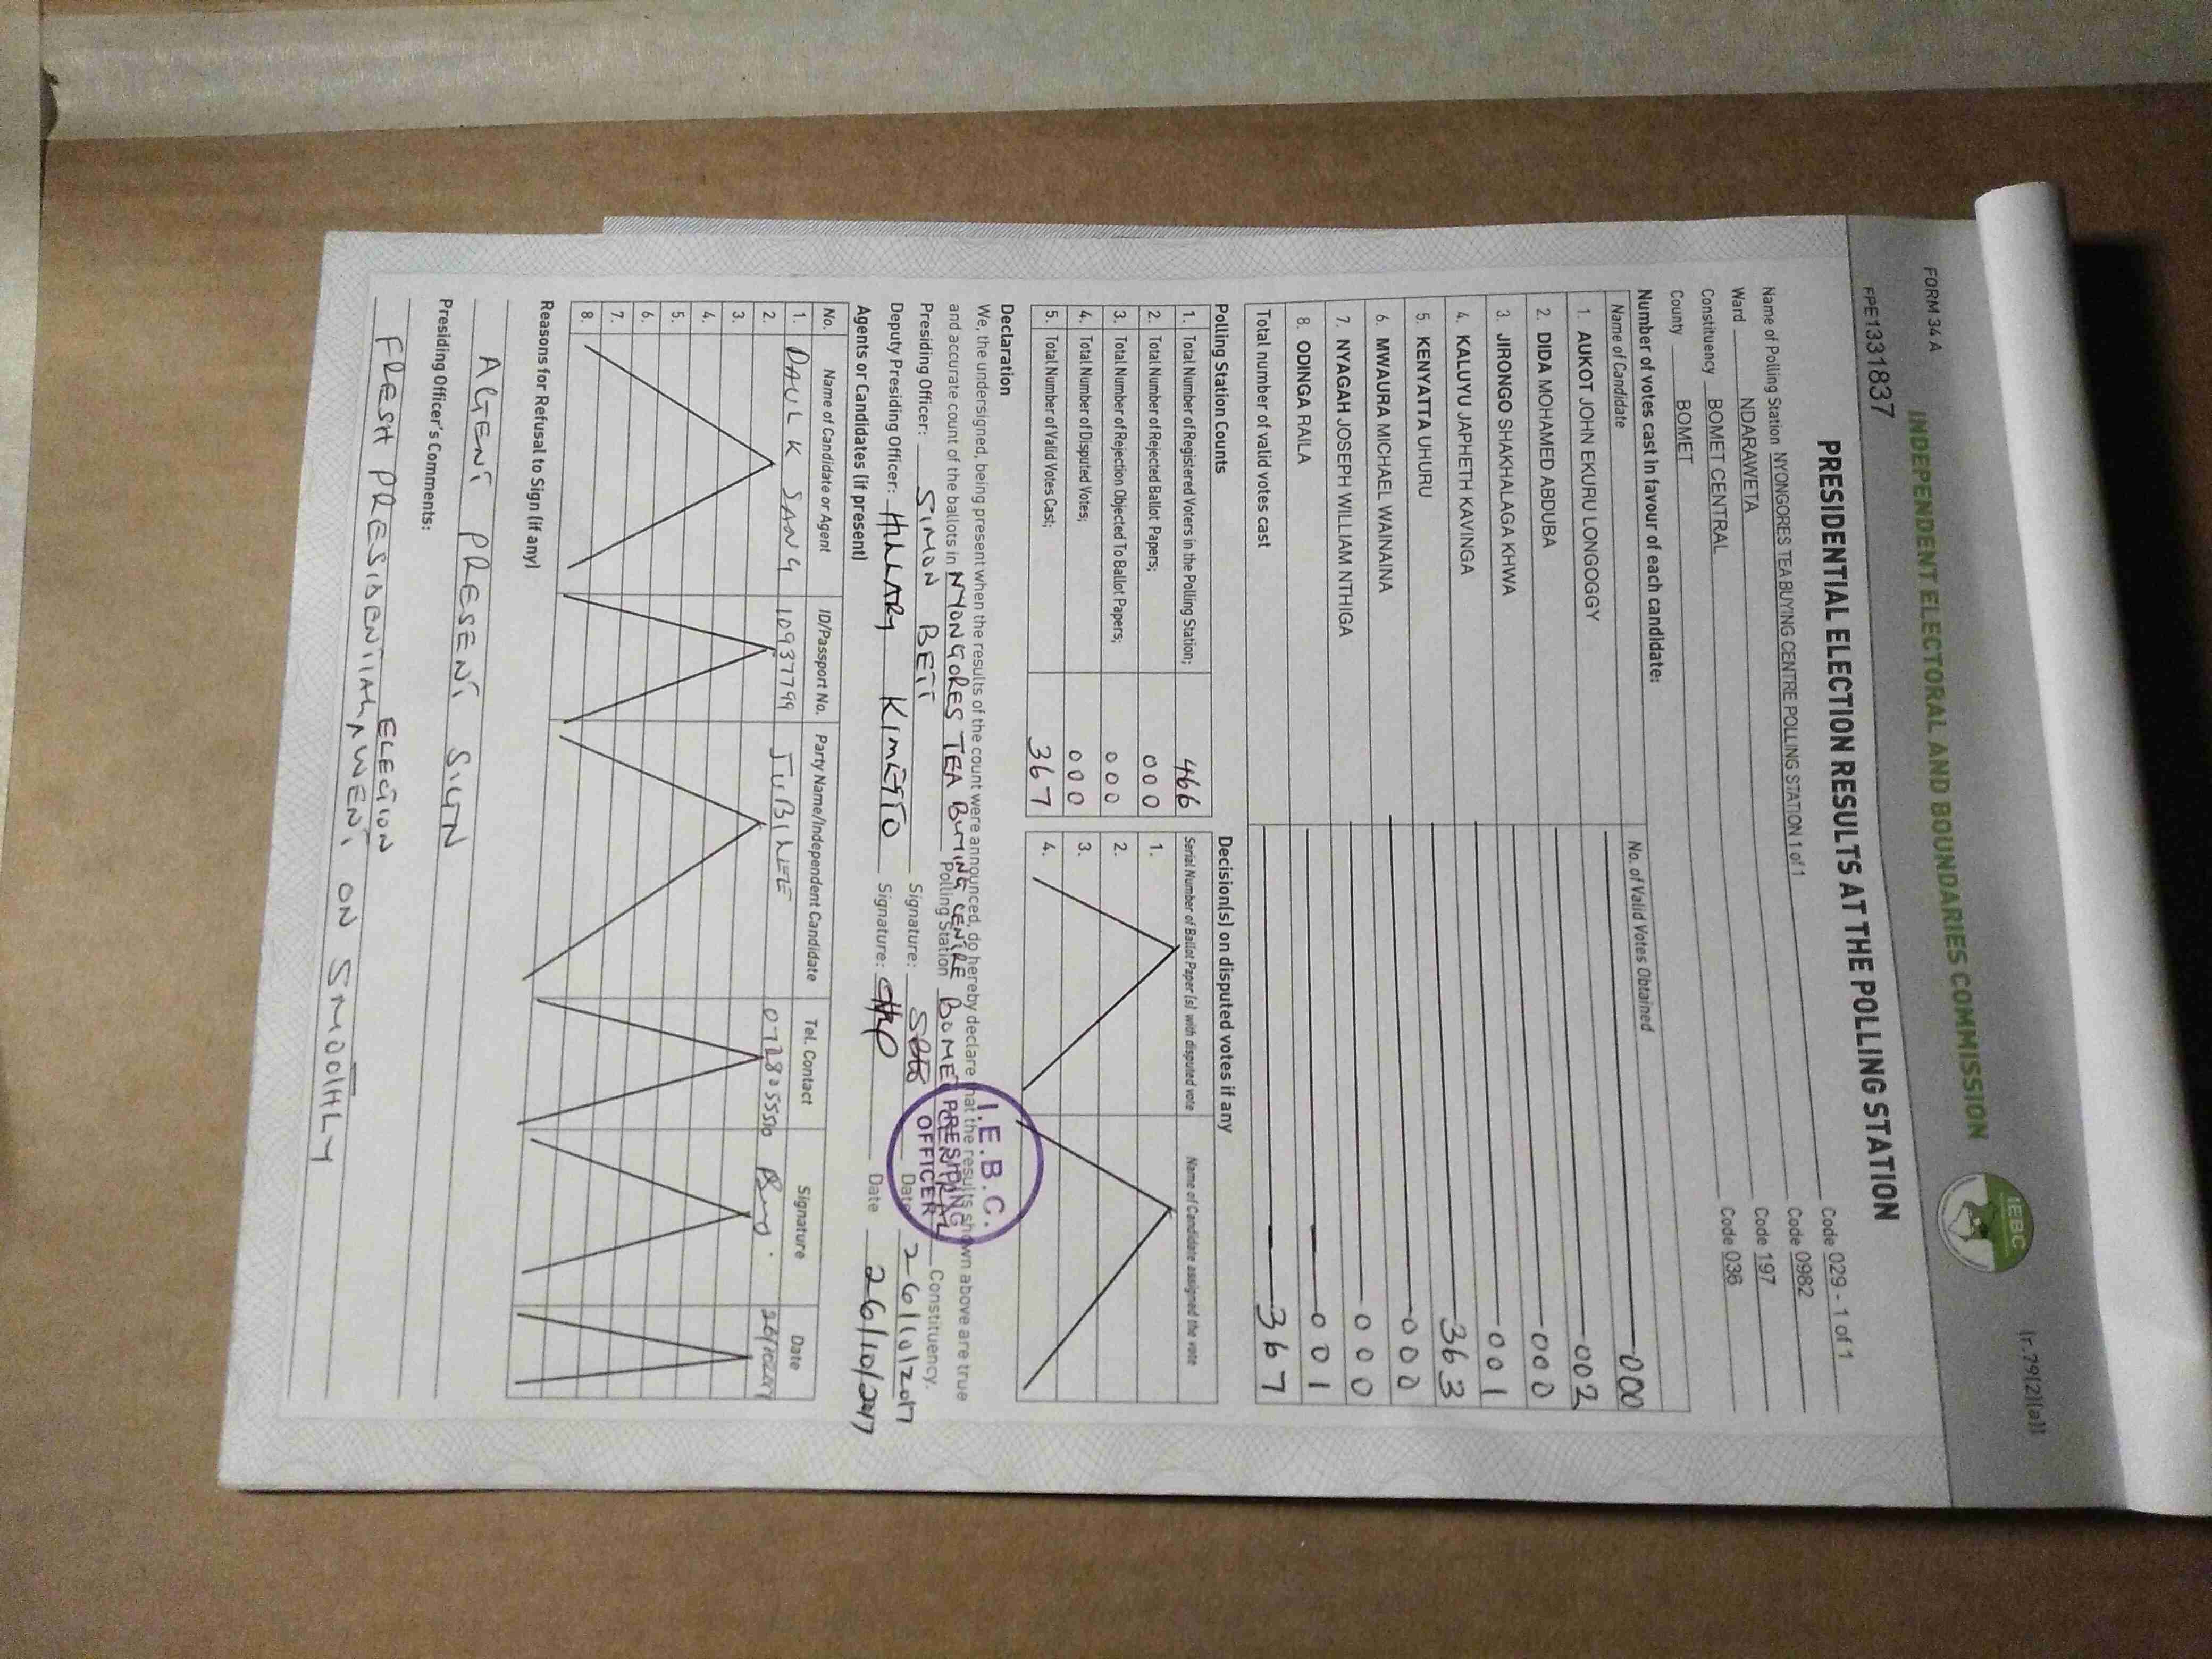 FORM 34 A
(r.79(2)(a))
INDEPENDENT ELECTORAL AND BOUNDARIES COMMISSION
IEBC
FPE1331837
PRESIDENTIAL ELECTION RESULTS AT THE POLLING STATION
Name of Polling Station NYONGORES TEA BUYING CENTRE POLLING STATION 1 of 1 Code 029 - 1 of 1
Ward NDARAWETA Code 0982
Constituency BOMET CENTRAL Code 197
County BOMET Code 036
Number of votes cast in favour of each candidate:
Name of Candidate No. of Valid Votes Obtained
1. AUKOT JOHN EKURU LONGOGGY 000
2. DIDA MOHAMED ABDUBA 002
3. JIRONGO SHAKHALAGA KHWA 000
4. KALUYU JAPHETH KAVINGA 001
5. KENYATTA UHURU 363
6. MWAURA MICHAEL WAINAINA 000
7. NYAGAH JOSEPH WILLIAM NTHIGA 000
8. ODINGA RAILA 001
Total number of valid votes cast 367
Polling Station Counts
1. Total Number of Registered Voters in the Polling Station; 466
2. Total Number of Rejected Ballot Papers; 000
3. Total Number of Rejection Objected To Ballot Papers; 000
4. Total Number of Disputed Votes; 000
5. Total Number of Valid Votes Cast; 367
Decision(s) on disputed votes if any
Serial Number of Ballot Paper (s) with disputed vote Name of Candidate assigned the vote
1.
2.
3.
4.
Declaration
We, the undersigned, being present when the results of the count were announced, do hereby declare that the results shown above are true
and accurate count of the ballots in NYONGORES TEA BUYING CENTRE Polling Station BOMET CENTRAL Constituency.
I.E.B.C.
PRESIDING
OFFICER
Presiding Officer: SIMON BETT Signature: Date 26/10/2017
Deputy Presiding Officer: HILLARY KIMETTO Signature: Date 26/10/2017
Agents or Candidates (if present)
No. Name of Candidate or Agent ID/Passport No. Party Name/Independent Candidate Tel. Contact Signature Date
1. PAUL K SANG 10937799 JUBILEE 26/10/2017
2.
3.
4.
5.
6.
7.
8.
Reasons for Refusal to Sign (if any)
AGENT PRESENT SIGN
Presiding Officer's Comments:
FRESH PRESIDENTIAL ELECTION WENT ON SMOOTHLY